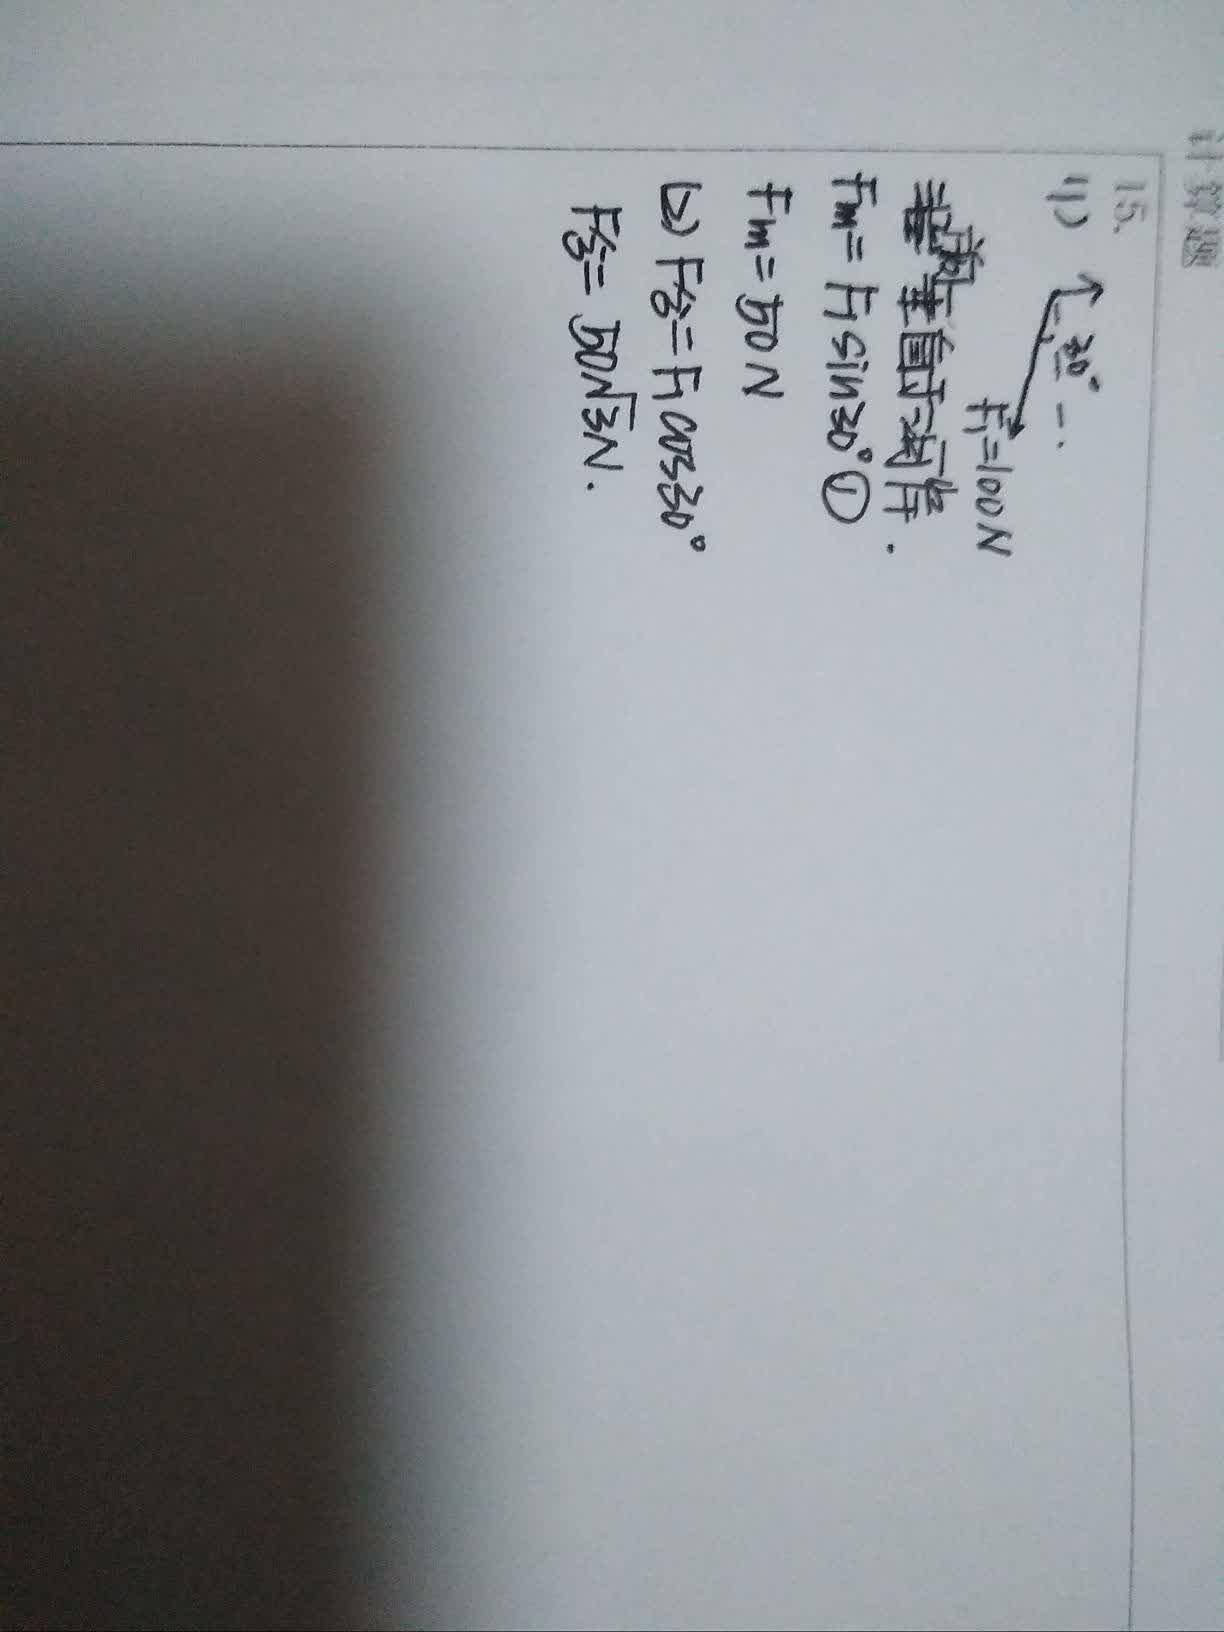 计算题
15.
(1) 30°
F₁=100N
垂直于两岸.
Fm=F₁sin30° ①
Fm=50N
(2) F合=F₁cos30°
F合=50√3N.